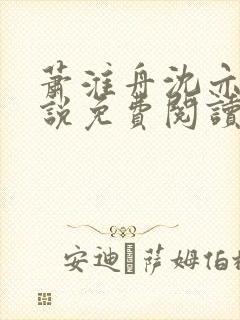 蕭淮舟沈亦
說免費閱讀
安迪·萨姆伯格